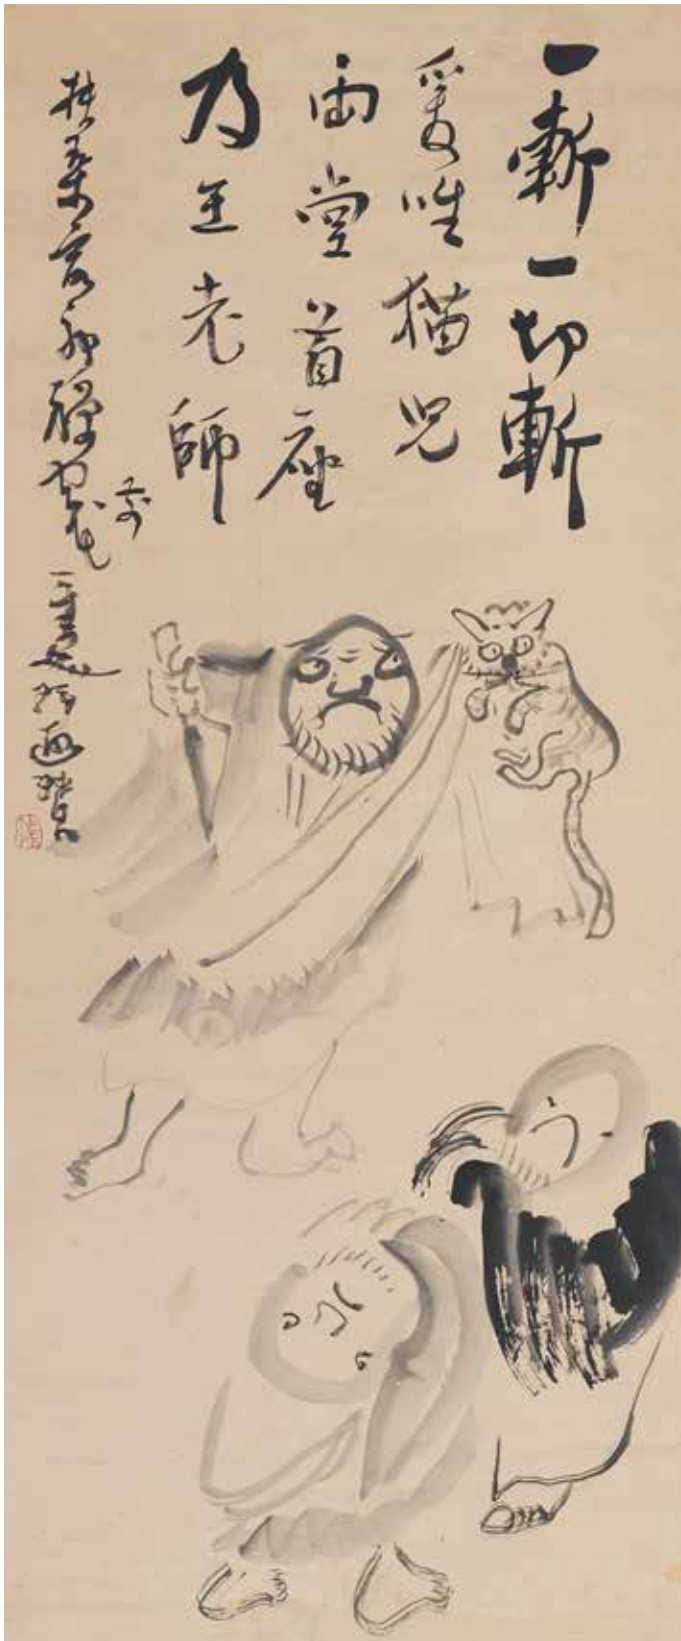 一斬一切斬
爰唯猫児
両堂首座
及王老師
扶桒最初禅窟